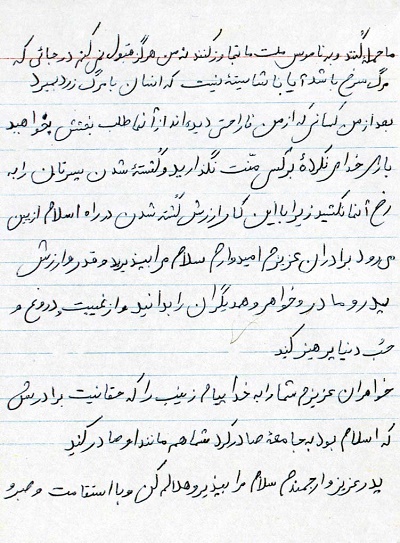 ما حمله کنند و به ناموس ملت ما تجاوز کنند نه من هرگز قبول نمی کنم در جائی که
مرگ سرخ باشد آیا با شایسته نیست که انسان با مرگ زرد بمیرد
بعد از من کسانی که از من ناراحتی دیده اند از آنها طلب بخشش بخواهید
بازی خدای نکرده برکس منت نگذارید و کشته شدن پسرتان را به
رخ آنها نکشید زیرا با این کار ارزش کشته شدن در راه اسلام از بین
می رود برادران عزیزم امیدوارم سلام مرا بپذیرید و قدر و ارزش
پدر و مادر و خواهر و همدیگران را بدانید و از غیبت و دروغ و
حب دنیا پرهیز کنید
خواهران عزیزم شما را به خدا پیام زینب را که حقانیت برادرش
که اسلام بود به جامعه صادر کرد شما هم مانند او صادر کنید
پدر عزیز و ارجمندم سلام مرا بپذیر و حلالم کن و با استقامت و صبر و